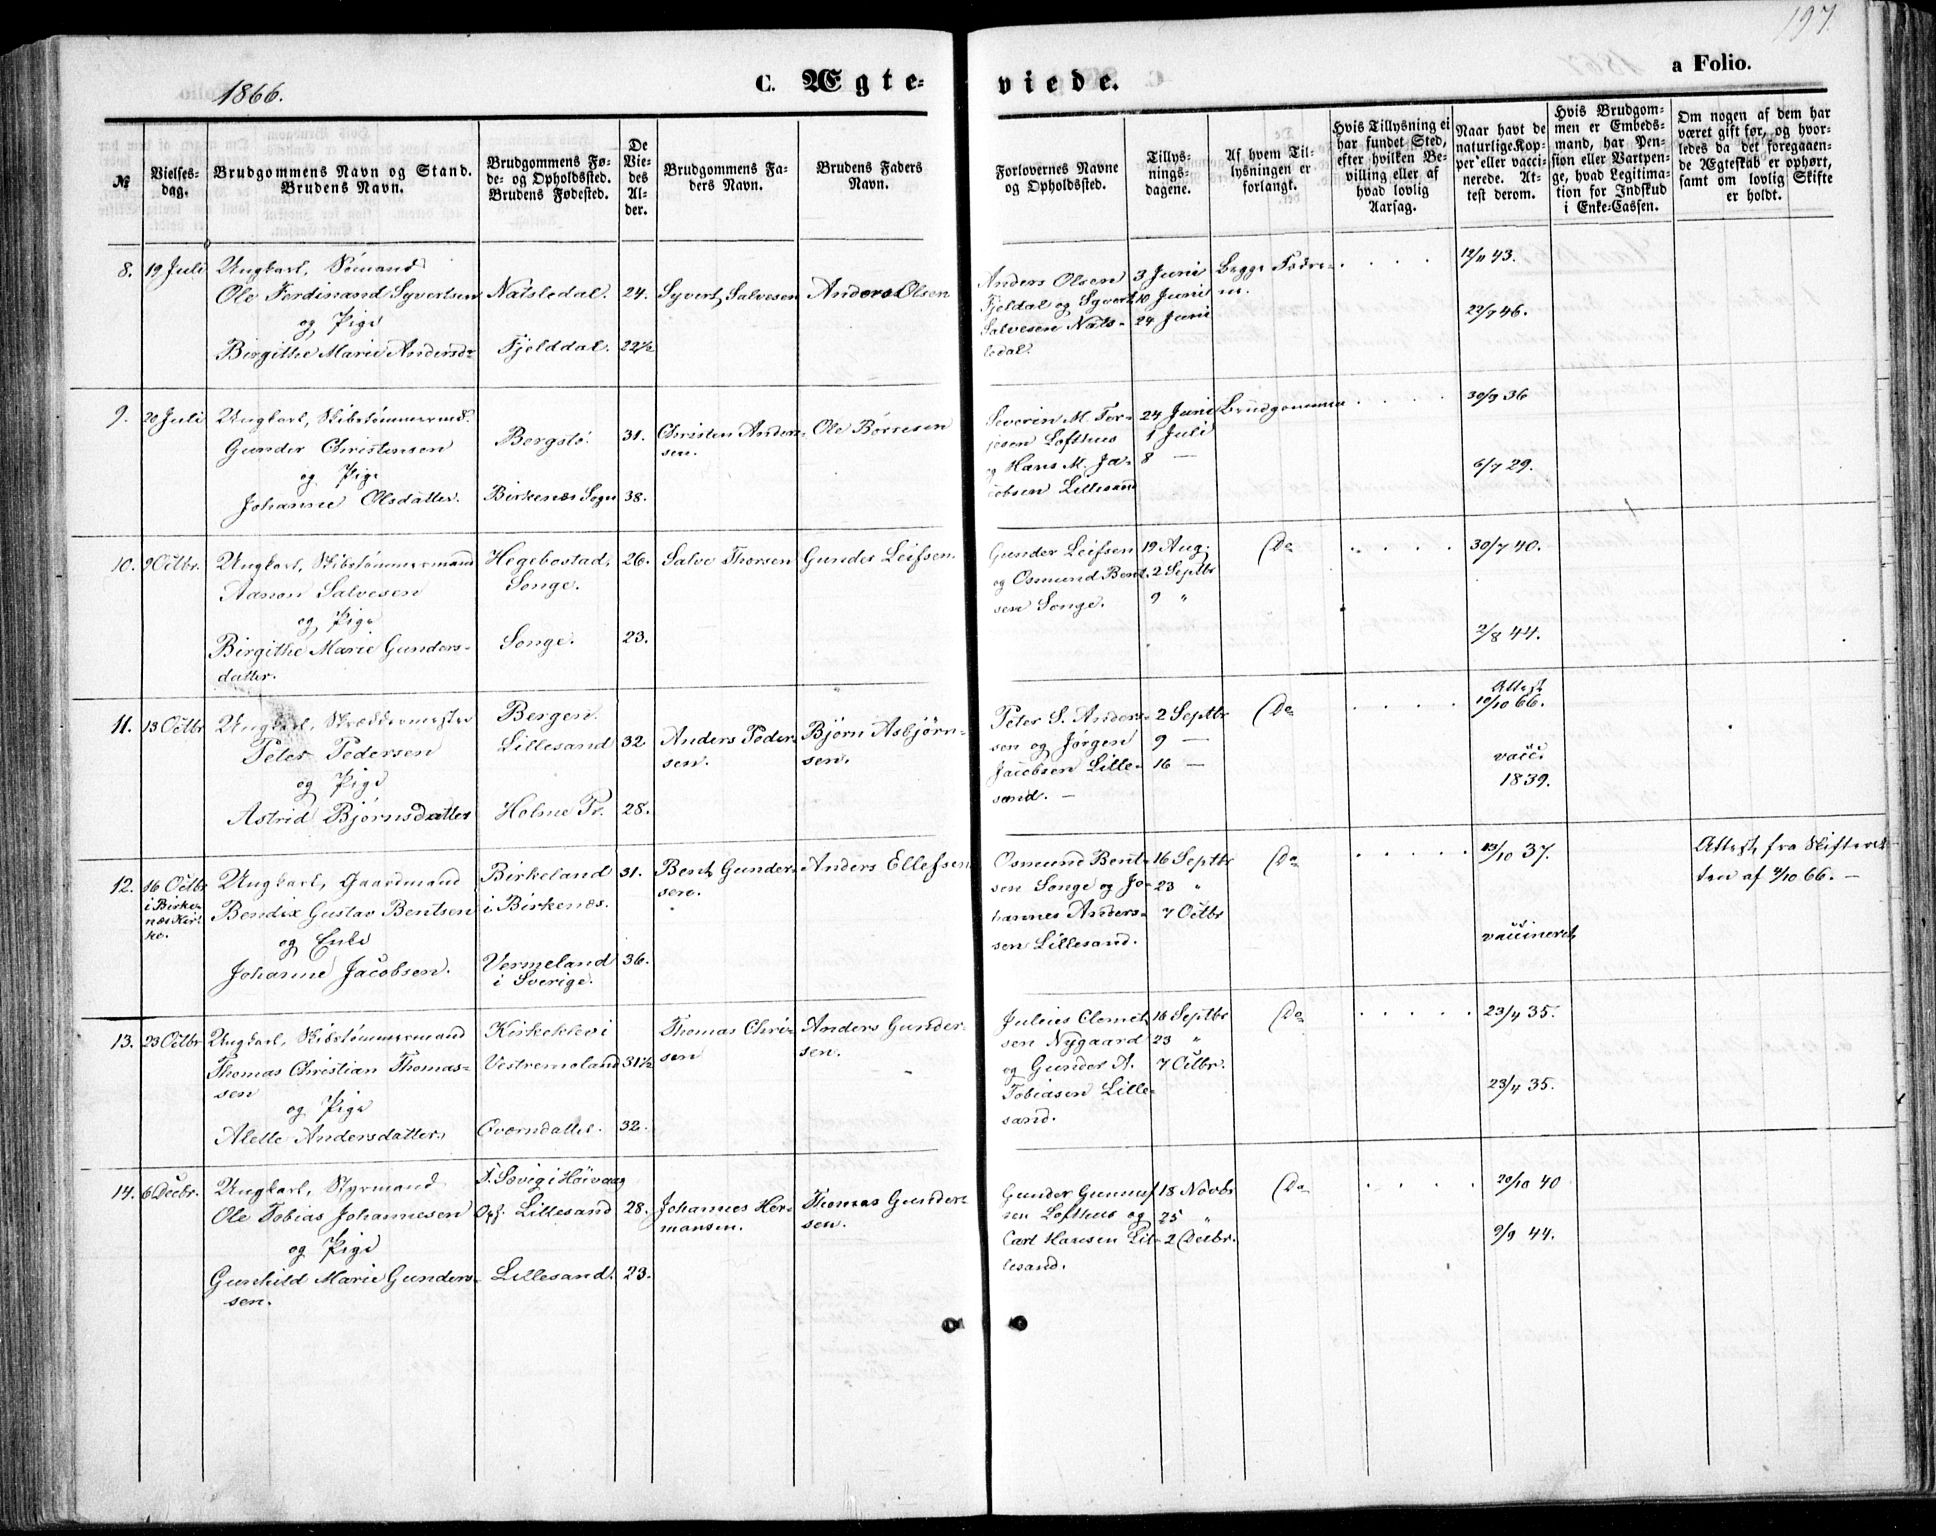 1866.
C. Ægte-
viede.
a Folio.
197.
№
Vielses-
dag.
Brudgommens Navn og Stand.
Brudens Navn.
Brudgommens Fø-
de- og Opholdssted.
Brudens Fødested.
De
Vie-
des
Al-
der.
Brudgommens Fa-
ders Navn.
Brudens Faders
Navn.
Forlovernes Navne
og Opholdssted.
Tillys-
nings-
dagene.
Af hvem Til-
lysningen er
forlangt.
Hvis Tillysning ei
har fundet Sted,
efter hvilken Be-
villing eller af
hvad lovlig
Aarsag.
Naar havt de
naturlige Kop-
per eller vacci-
nerede. At-
test derom.
Hvis Brudgom-
men er Embeds-
mand, har Pen-
sion eller Vartpen-
ge, hvad Legitima-
tion for Indskud
i Enke-Cassen.
Om nogen af dem har
været gift før, og hvor-
ledes da det foregaaen-
de Ægteskab er ophørt,
samt om lovlig Skifte
er holdt.
8.
19 Juli
Ungkarl, Sømand
Ole Ferdinand Syvertsen
og Pige
Birgithe Marie Andersdr
Natsledal.
Fjelddal.
24.
22½
Syvert Salvesen
Anders Olsen
Anders Olsen
Fjeldal og Syvert
Salvesen Nats-
ledal.
3 Juni
10 Juni
24 Juni
Begge Fædre-
ne.
12/11 43.
22/7 46.
9.
20 Juli
Ungkarl, Skibstømmermd.
Gunder Christensen
og Pige
Johanne Olsdatter.
Bergstø.
Birkenæs Sogn
31.
38.
Christen Ander-
sen.
Ole Børresen
Severin M. Ter-
jesen Lofthus
og Hans M. Ja-
cobsen Lillesand
24 Juni
1 Juli
8 —
Brudgommen
30/9 36
6/7 29.
10.
9 Octbr.
Ungkarl, Skibstømmermand
Aanon Salvesen
og Pige
Birgithe Marie Gunders-
datter.
Hegebostad,
Songe.
Songe.
26.
23.
Salve Thorsen
Gunder Leifsen.
Gunder Leifsen
og Osmund Bent-
sen Songe.
19 Aug.
2 Septbr
9 "
Do
30/7 40.
2/8 44.
11.
13 Octbr
Ungkarl, Skræddermester
Peter Pedersen
og Pige
Astrid Bjørnsdatter
Bergen.
Lillesand
Holme Pr.
32
28.
Anders Peder-
sen.
Bjørn Asbjørn-
sen.
Peter S. Anders-
sen og Jørgen
Jacobsen Lille-
sand. —
2 Septbr
9 —
16 —
Do
Attest
10/10 66.
vacc.
1839.
12.
16 Octbr
i Birke-
næs Kir-
ke.
Ungkarl, Gaardmand
Bendix Gustav Bentsen
og Enke
Johanne Jacobsen.
Birkeland
i Birkenæs.
Vermeland
i Sverige.
31.
36.
Bent Gunder-
sen.
Anders Ellefsen
Osmund Bent-
sen Songe og Jo-
hannes Anders-
sen Lillesand.
16 Septbr
23 "
7 Octbr
Do
13/10 37.
vaccineret
Attest fra Skifteret-
ten af 9/10 66. —
13.
23 Octbr
Ungkarl, Skibstømmermand
Thomas Christian Thomas-
sen
og Pige
Alette Andersdatter,
Kirkeklev i
Vestremoland
Qværndallet.
31½
32.
Thomas Chri-
sen
Anders Gunder-
sen.
Julius Clemet-
sen Nygaard
og Gunder A.
Tobiasen Lille-
sand.
16 Septbr
23 "
7 Octbr.
Do
23/4 35.
23/4 35.
14.
6 Decbr.
Ungkarl, Styrmand
Ole Tobias Johannesen
og Pige
Gunhild Marie Gunders-
sen.
F. Søvig i Høivaag
Oph. Lillesand
Lillesand.
28.
23.
Johannes Her-
mansen.
Thomas Gunder-
sen.
Gunder Gunnuf-
sen Lofthus og
Carl Hansen Lil-
lesand.
18 Novbr
25 "
2 Decbr.
Do
20/10 40
9/9 44.